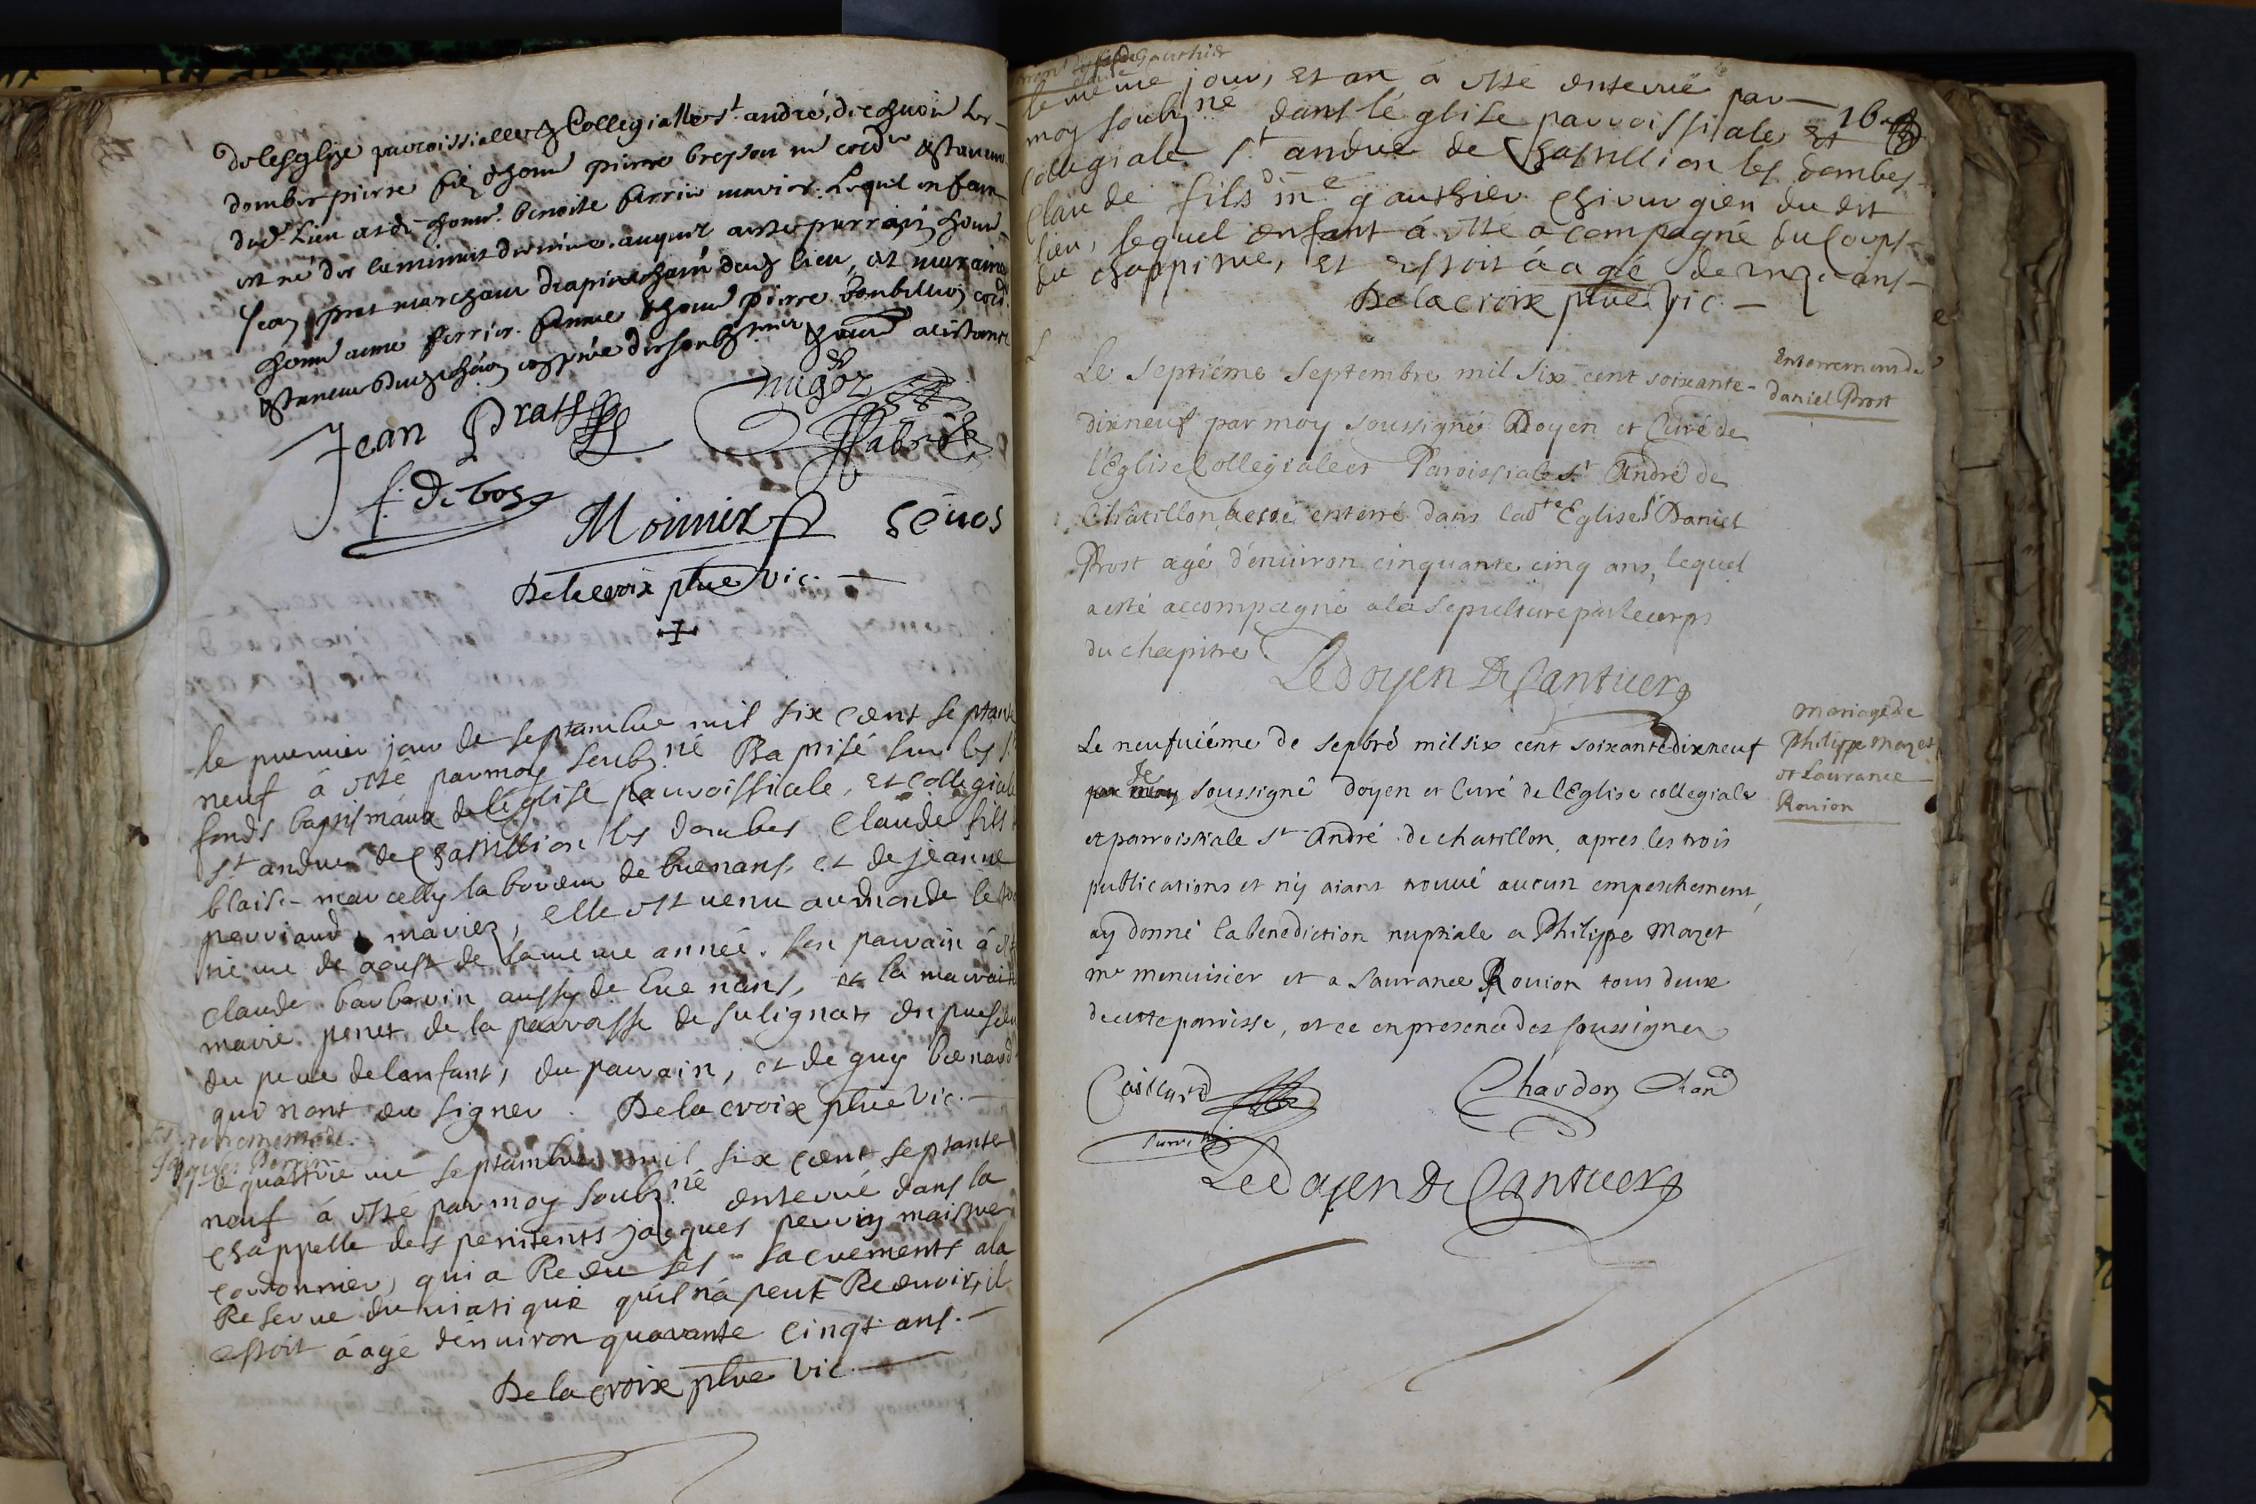 de lesglise parroissialle & Collegialle st. andré, de chaon les
dombes pierre filz dhonn pierre breysou md cord
dud. Lieu et de honn. benoite ferrier mariez. Lequel enfant
est né des la minuit derniere. auquel a esté parrain honn
Jean prat marchant drapier dud lieu, et marraine
honn anne ferrier. femme dhonn pierre
Jean Prats
f. Debost
Monnier
De la croix pbre vic.
le premier jour de septambre mil six cent septante
neuf à esté par moy soubz.né Baptisé sur les s.
fonds baptismaux de léglise parroissiale, et collegiale
st andre de Chastillion les dombes, Claude fils
blaise marcelly laboreur de buenans, et de jeanne
perriaud mariez, elle est venu au monde le
ne me de aoust de la meme année. son parrain à esté
claude barbarin aussy de buenans, et la marraine
marie penet de la parroisse de sulignat en presence
du pere de lanfant, du parrain, et de guy
qui nont seu signer. De la croix pbre vic.
Enterrement de
Jaques Perrin
le quatrie me septambre mil six cent septante
neuf à esté par moy soubz.né enterré dans la
chappelle des penitents jacques perrin maistre
cordonnier, qui a Receu ses sacrements a la
Reserve du viatique quil na peut Recevoir, il
estoit áagé dénviron quarante cinqt ans.
De la croix pbre vic
le méme jour, et an á esté enterré par
moy soubz.né dans lé glise parroissiale et
collegiale st andre de Chastillion les dombes
Claude fils de me gauthier chirurgien du dit
lieu, lequel enfant á esté acompagné du Corps
du chappitre, et estoit áagé de onze ans
De la croix pbre vic.
Enterrement de
Daniel Prost
Le septiéme septembre mil six cent soixante-
dixneuf par moy soussigné Doyen et Curé de
l'Eglise Collegiale et Paroissiale st André de
Châtillon, a esté enterré dans lad.te Eglise sr Daniel
Prost agé d'environ cinquante cinq ans, lequel
a esté accompagné a la sepulture par le corps
du chapitre
Le doyen De Cantuer
Mariage de
Philippe Mazet
et Laurance
Rouion
Le neufviéme de sepbre mil six cent soixante dix neuf
Je soussigné Doyen et Curé de l'Eglise collegiale
et parroissiale st André de chatillon, apres les trois
publications et n'y aiant trouvé aucun empeschement,
ay donné la benediction nuptiale a Philippe Mazet
me menuisier et a Laurance Rouion tous deux
de cette paroisse, et ce en presence des soussignez
Caillard
Chardon Chan
Le doyen De Cantuer